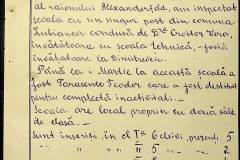 al raionului Alexanderfeld, am inspectat
școala cu un singur post din comuna
condusă de D-ra Croitor Vera,
învățătoare cu școala tehnică, - fosta
învățătoare la
Până la 1 Martie la această școală a
fost Tanasente Teodor care a fost destituit
pentru complectă inactivitate. -
Școala are local propriu cu două săli
de clasă. -
Sunt înscriși, în cl. I-a 6 elevi, prezenți 5
II 5 2